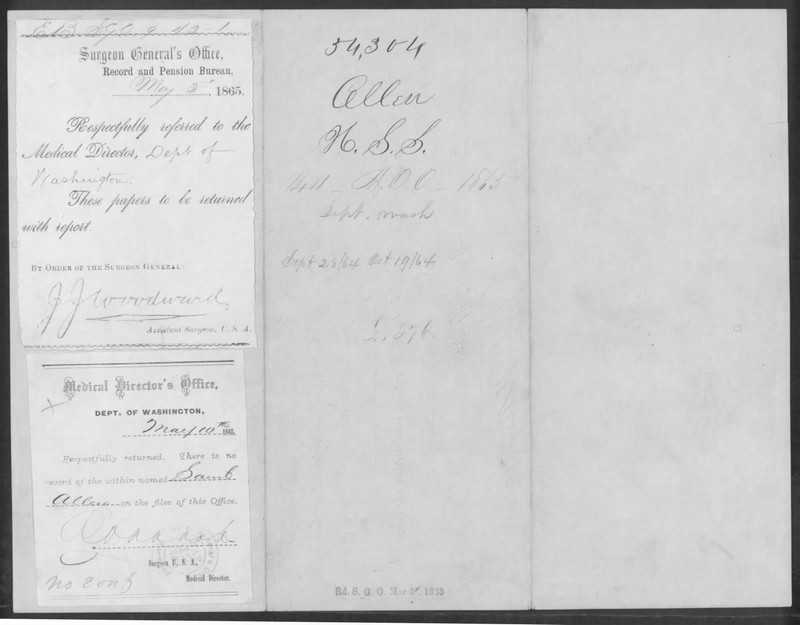 Surgeon General's Office,
Record and Pension Bureau.
May 5, 1865.
Respectfully referred to the
Medical Director, Dept of
Washington.
These papers to be returned
with report.
BY ORDER OF THE SURGEON GENERAL:
J J Woodward
Assistant Surgeon, U. S. A.
Medical Director's Office,
DEPT. OF WASHINGTON,
May 10th 1865.
Respectfully returned. There is no
record of the within named Saml
Allen on the files of this Office.
Surgeon U. S. A.,
Medical Director.
no conf
54,304
Allen
H. S. S.
1865
Dept. Wash
Sept 28/64 Oct 19/64
L. 376.
Bd. S. G. O. Mar 1865